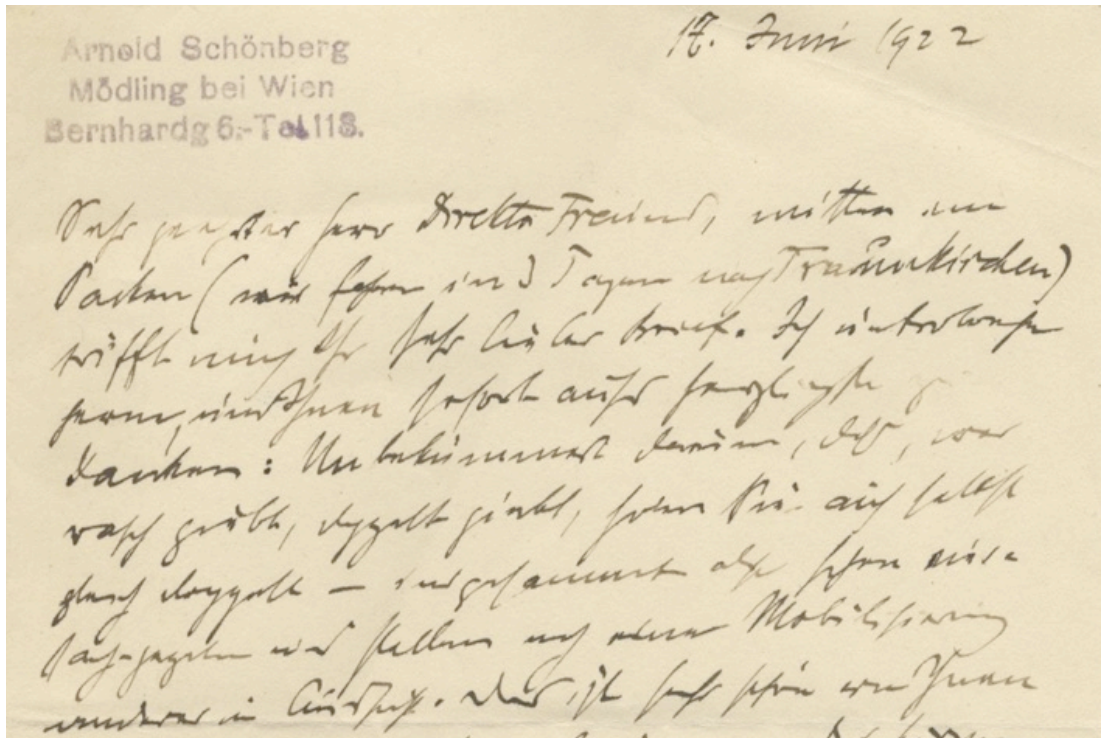 Arnold Schönberg
Mödling bei Wien
Bernhardg 6.-Tel 118.
17. Juni 1922
Sehr geehrter Herr Direktor Freund, mitten im
Packen (wir fahren in 3 Tagen nach Traunkirchen)
trifft mich Ihr sehr lieber Brief. Ich unterbreche
gerne, um Ihnen sofort aufs herzlichste zu
danken: Unbekümmert darum, daß, wer
rasch giebt, doppelt giebt, haben Sie auch selbst
gleich doppelt – insgesammt also schon vier-
fach gegeben und stellen noch eine Mobilisierung
anderer in Aussicht. Das ist sehr schön von Ihnen